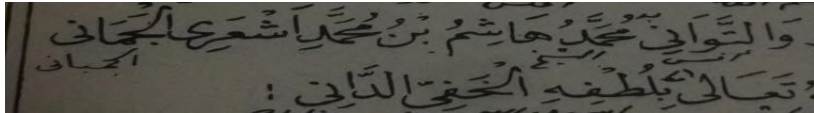 وَالتَّوَانِيْ مُحَمَّدُ هَاشِمُ بْنُ مُحَمَّدِ اَشْعَرِي الْجُمَانِى
الجبانى
تَعَالٰى بِلُطْفِهِ الْخَفِيّ الدَّانِى :